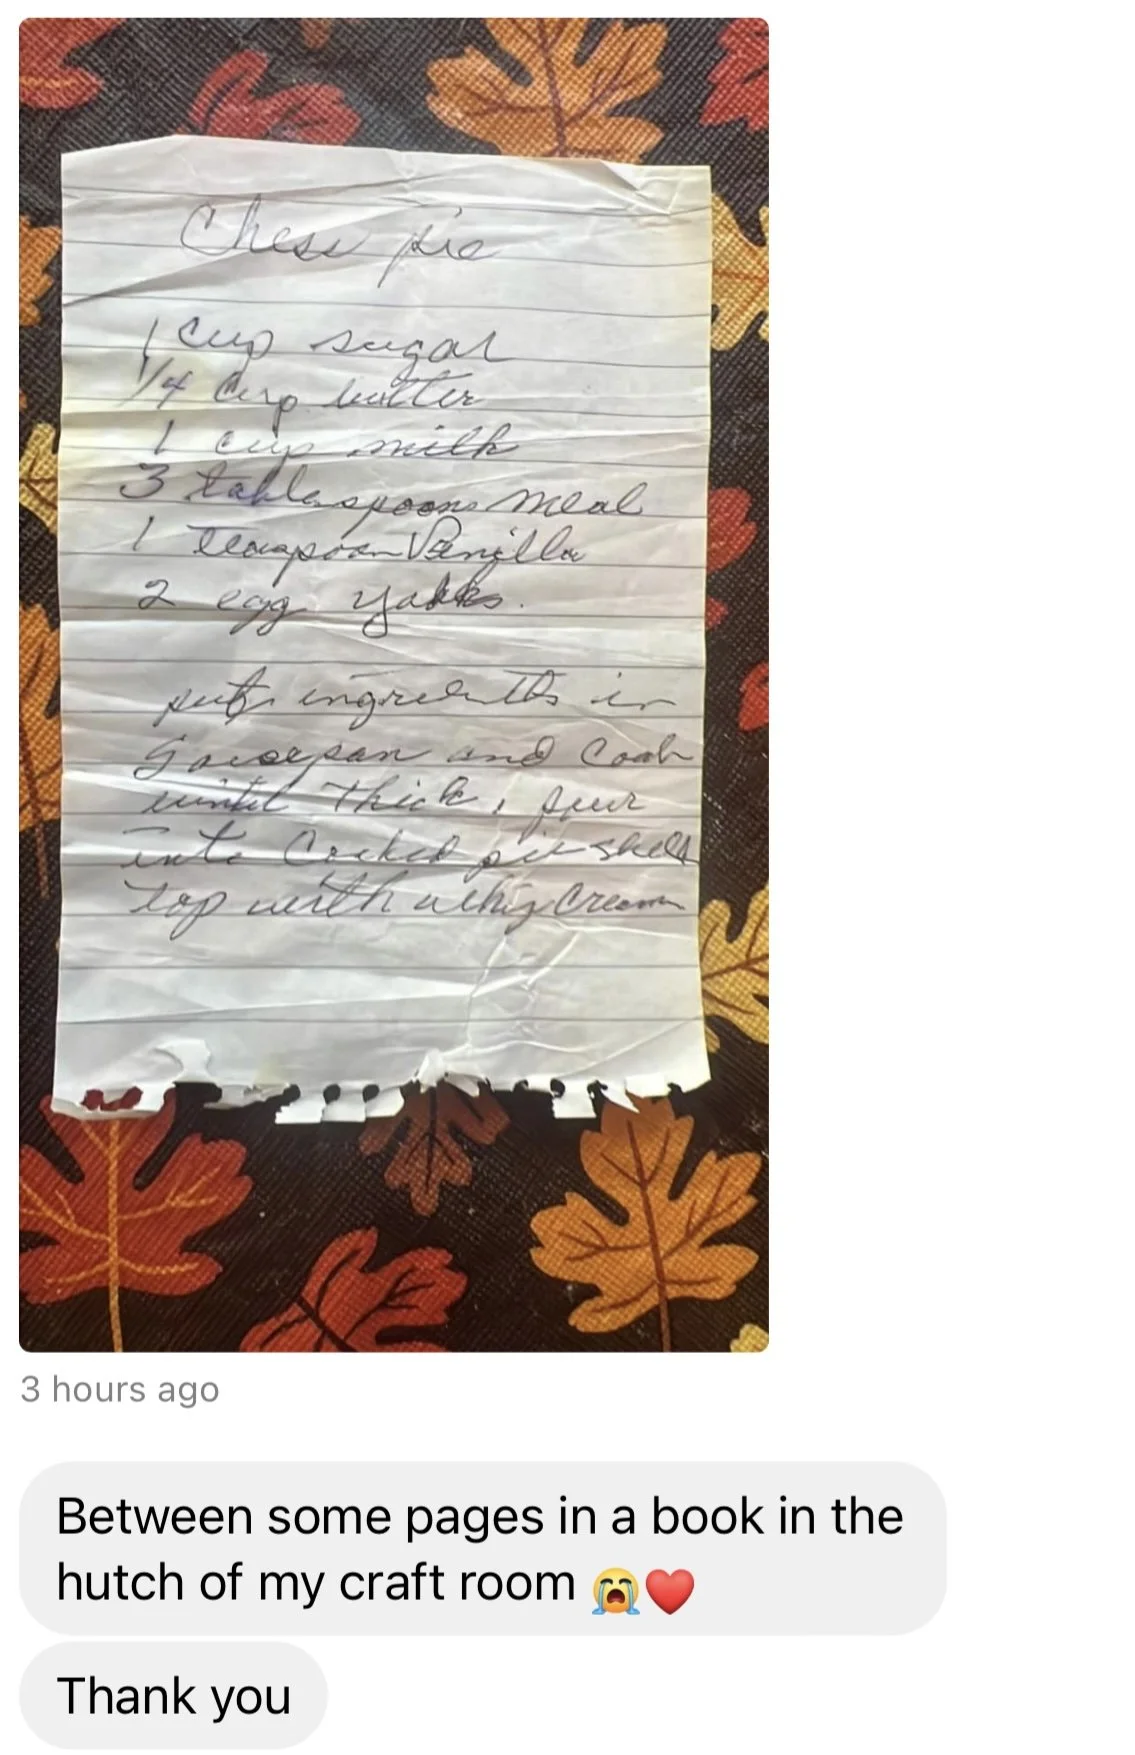 Chess pie
1 cup sugar
1/4 cup butter
1 cup milk
3 tablespoons meal
1 teaspoon Vanilla
2 egg yakks.
put ingredients in
Saucepan and Cook
until thick, pour
into Cocked pie shell
top with whip Cream
3 hours ago
Between some pages in a book in the
hutch of my craft room 😭❤️
Thank you